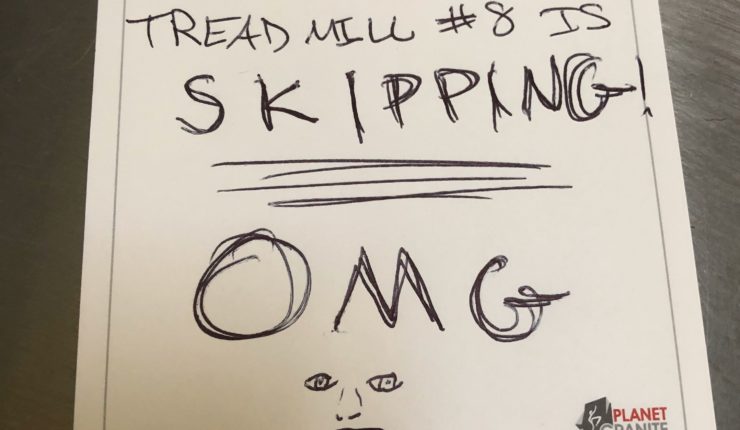 TREADMILL #8 IS
SKIPPING!
OMG
PLANET
GRANITE